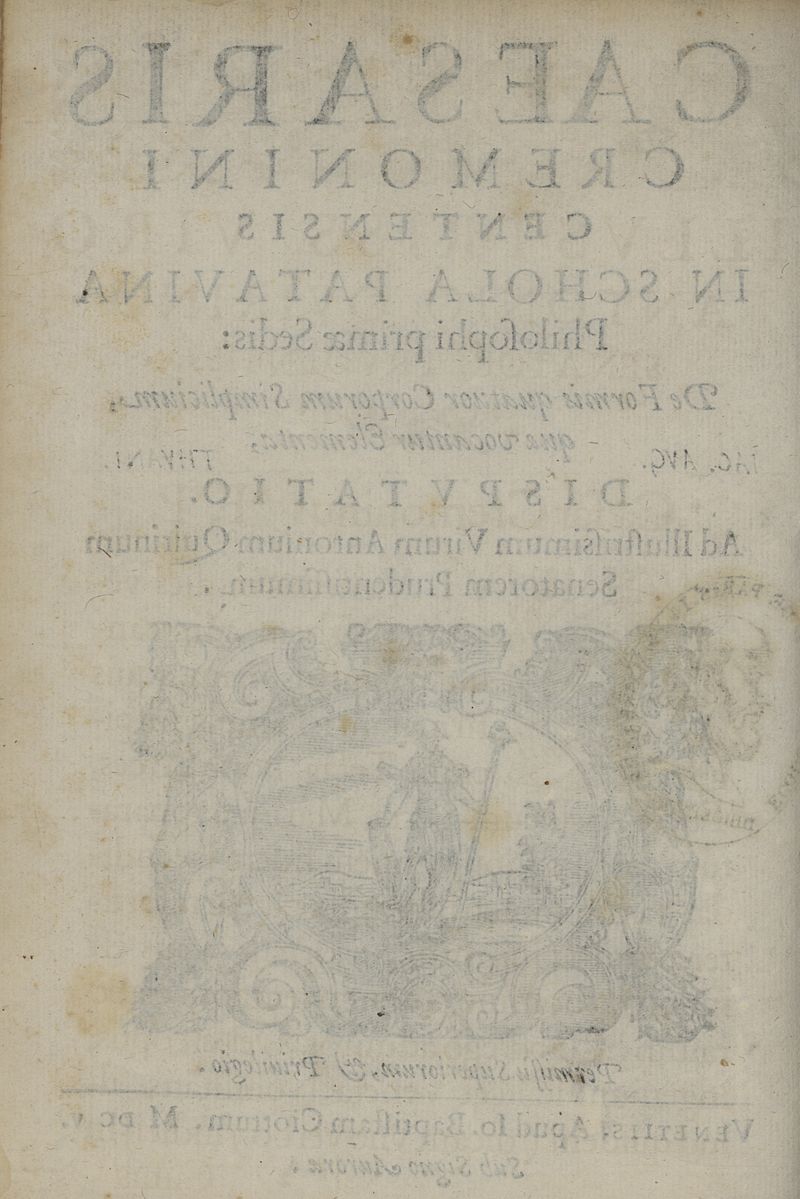 CAESARIS
CREMONINI
CENTENSIS
IN SCHOLA PATAVINA
Philoſophi primæ Sedis:
De Formis quatuor Corporum Simplicium,
quæ vocantur Elementa,
IAC. AVG. THVANI.
DISPVTATIO.
Ad Illuſtriſsimum Virum Antonium Quirinum
Senatorem Prudentiſsimum.
Permiſſu Superiorum, & Priuilegio.
VENETIIS, Apud Io. Baptiſtam Ciottum. M DC V.
Sub Signo Auroræ.